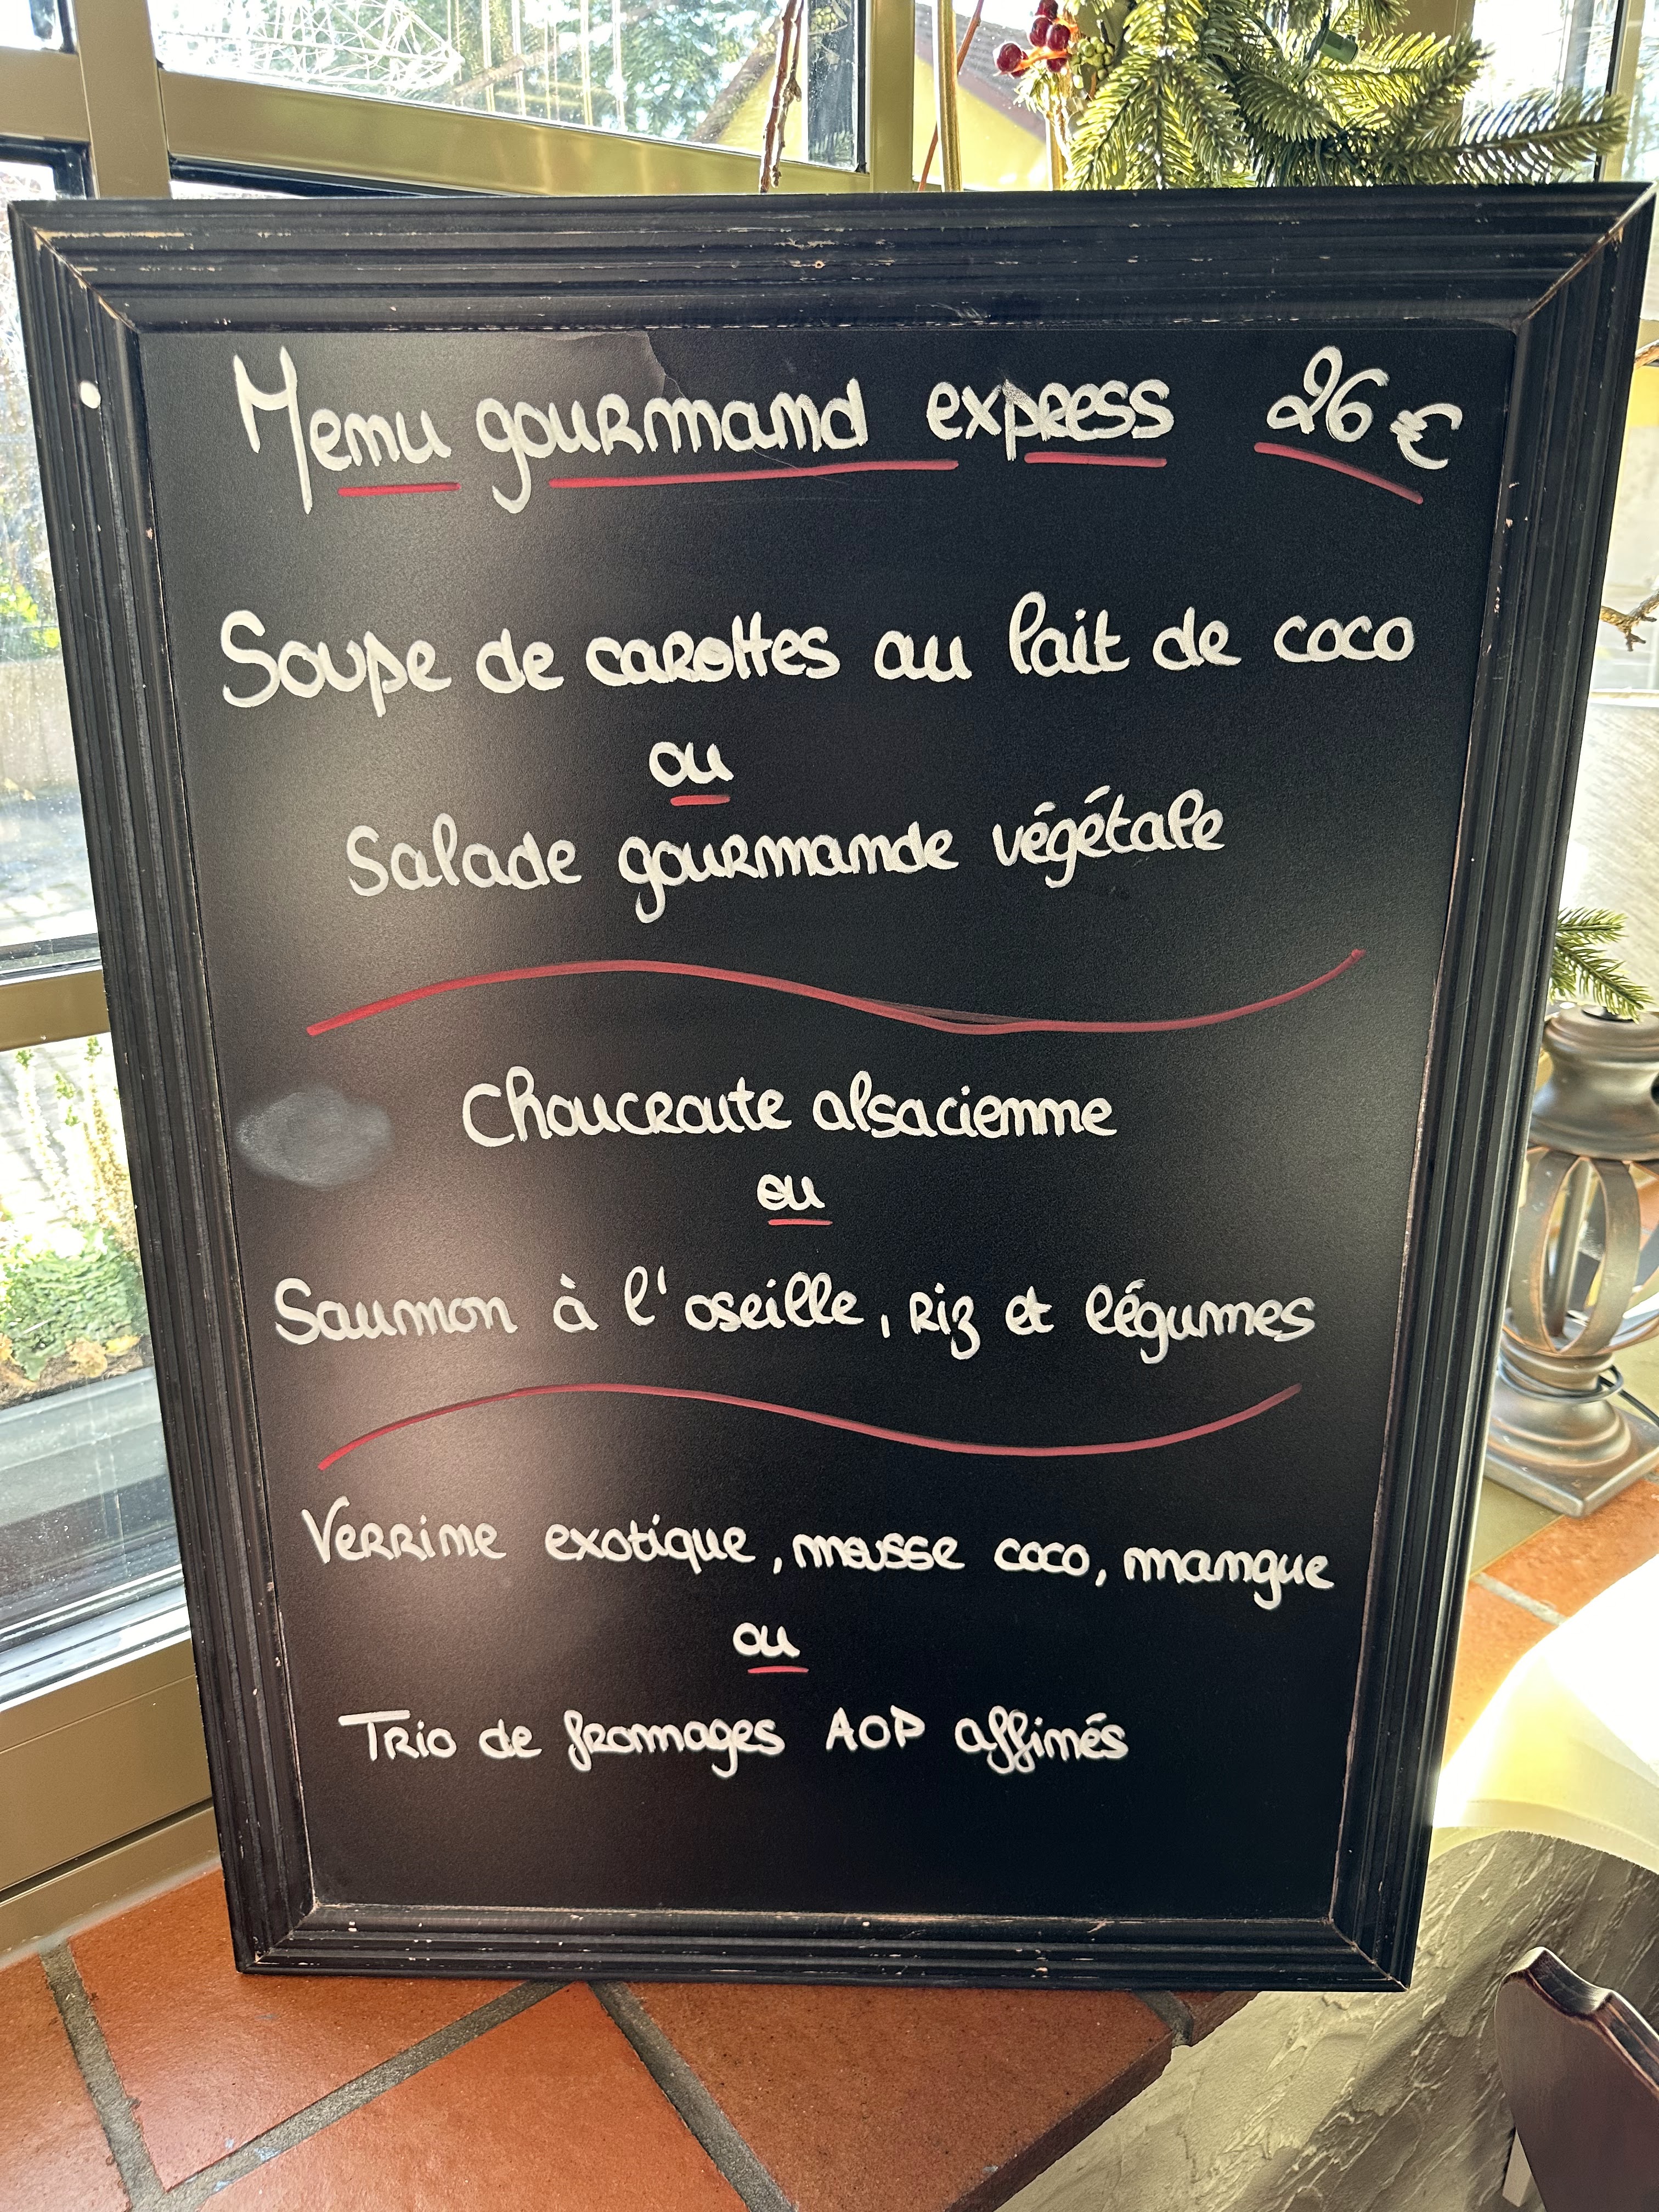 Menu gourmand express 26 €
Soupe de carottes au lait de coco
ou
Salade gourmande végétale
Choucroute alsacienne
ou
Saumon à l'oseille, riz et légumes
Verrine exotique, mousse coco, mangue
ou
Trio de fromages AOP affinés